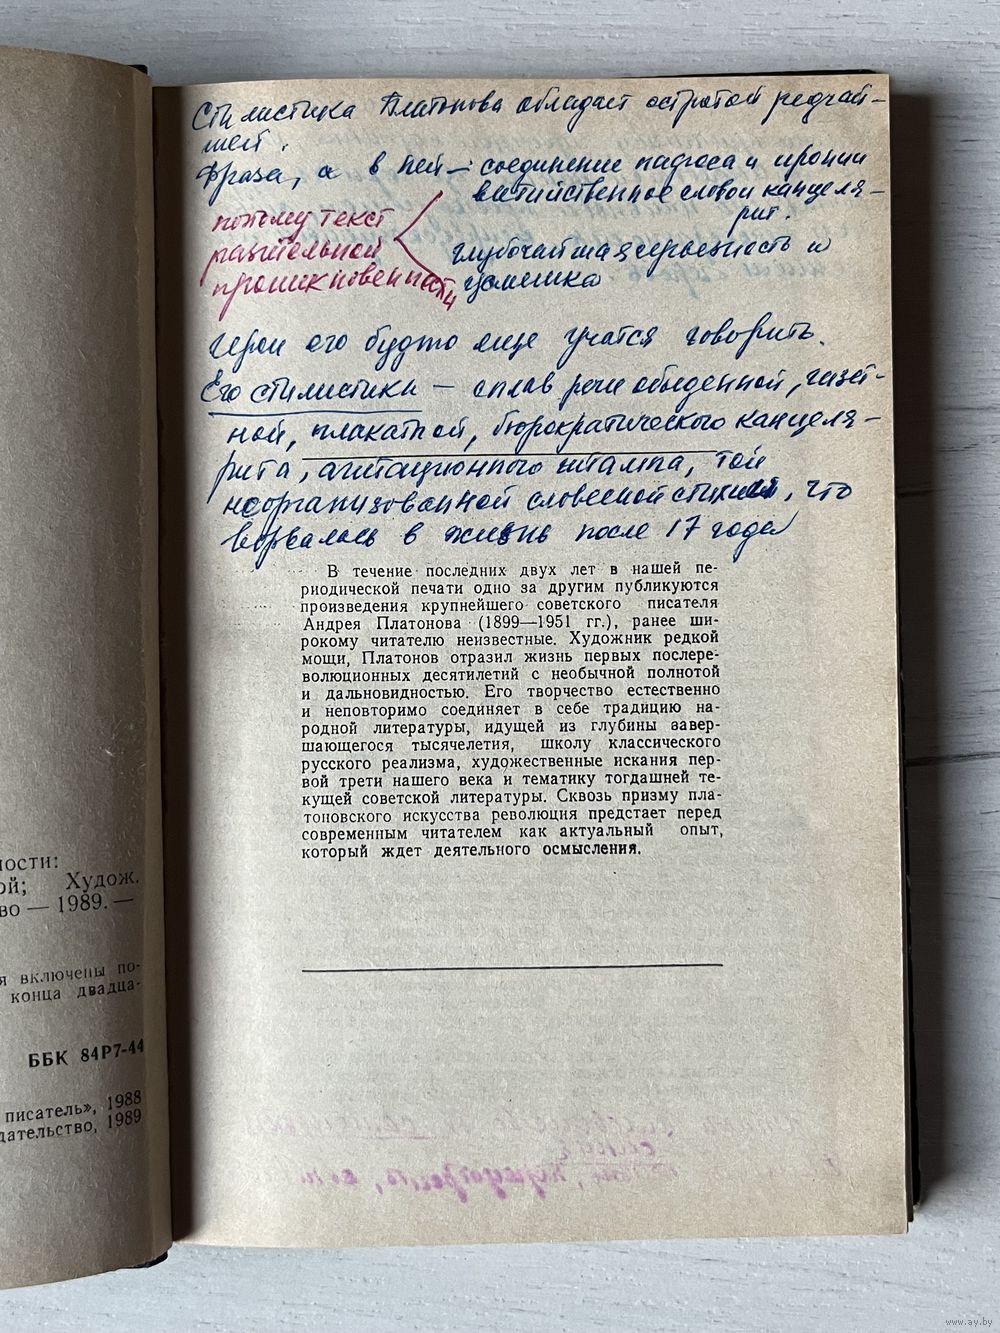 Стилистика Платонова обладает остротой редчай-
шей.
Фраза, а в ней – соединение пафоса и иронии
витийственное слово и канцеля-
рит.
поэтому текст
разительной
проникновенности
глубочайшая серьезность и
усмешка
Герои его будто еще учатся говорить.
Его стилистика – сплав речи обыденной, газет-
ной, плакатной, бюрократического канцеля-
рита, агитационного штампа, той
неорганизованной словесной стихии, что
ворвалась в жизнь после 17 года
В течение последних двух лет в нашей пе-
риодической печати одно за другим публикуются
произведения крупнейшего советского писателя
Андрея Платонова (1899—1951 гг.), ранее ши-
рокому читателю неизвестные. Художник редкой
мощи, Платонов отразил жизнь первых послере-
волюционных десятилетий с необычной полнотой
и дальновидностью. Его творчество естественно
и неповторимо соединяет в себе традицию на-
родной литературы, идущей из глубины завер-
шающегося тысячелетия, школу классического
русского реализма, художественные искания пер-
вой трети нашего века и тематику тогдашней те-
кущей советской литературы. Сквозь призму пла-
тоновского искусства революция предстает перед
современным читателем как актуальный опыт,
который ждет деятельного осмысления.
ности:
ой; Худож.
во — 1989. —
я включены по-
конца двадца-
ББК 84Р7-44
писатель», 1988
дательство, 1989
www.ay.by